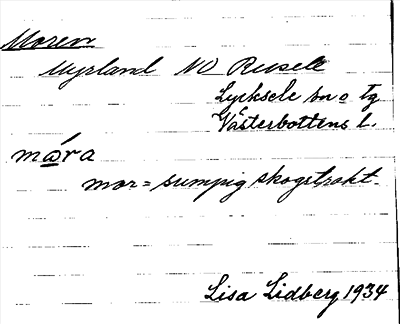 Moren
Myrland NO Rusele
Lycksele sn o tg
Västerbottens l.
mǻra
mor = sumpig skogstrakt.
Lisa Lidberg 1934